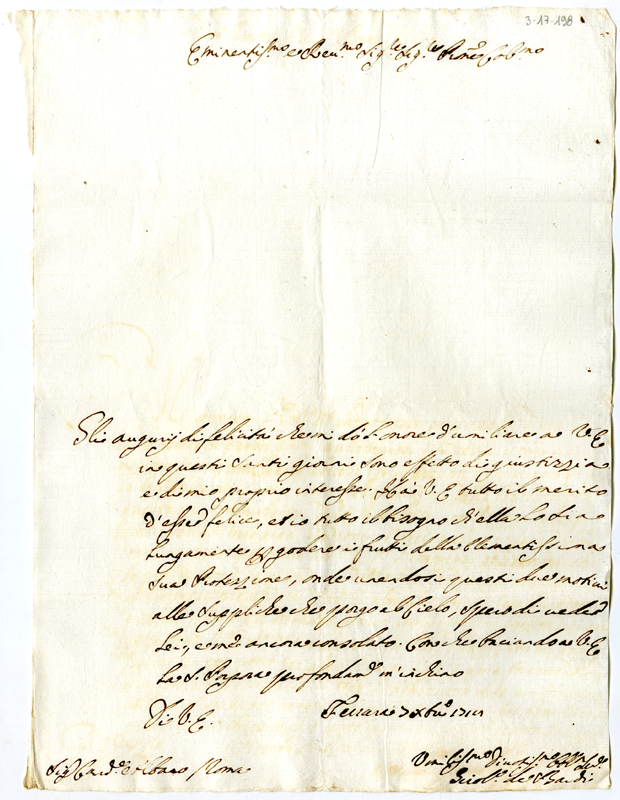 3-17-198
Eminentis.mo e Reu.mo Sig.re Sig.re Prone Col.mo
Gli augurij di felicità che mi dò l'onore d'umiliare a V E
in questi Santi giorni sono effetto di giustizzia
e di mio proprio interesse. Hà V E tutto il merito
d'esser felice, et io tutto il bisogno ch'ella lo sia
lungamente p godere i frutti della Clementissima
sua Protezzione, onde unendosi questi due motiui
alle Suppliche che porgo al Cielo, spero di ueder
Lei, e me ancora consolato. Con che baciando a V E
la S. Porpora profondam.e m'inchino
Di V. E.
Ferrara 7 Xbre
Sig.r Card.e Albano Roma
Vmilis.mo Diuotis.mo
de Bardi